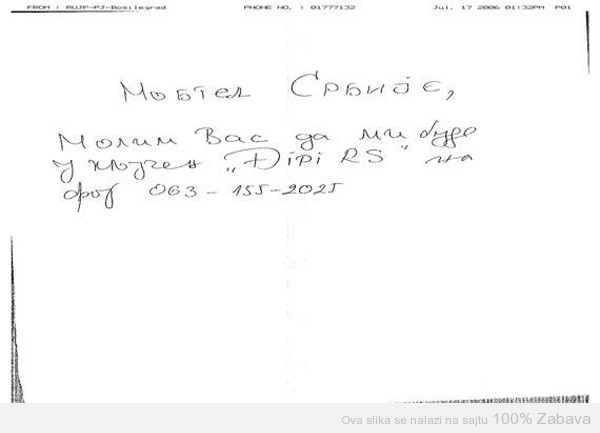 FROM : RUJP-PJ-Bosilegrad PHONE NO. : 01777132 Jul. 17 2006 01:32PM P01
Мобтел Србије,
Молим Вас да ми буде
укључен „Ðipi RS“ на
број 063-155-2025
Ova slika se nalazi na sajtu 100% Zabava